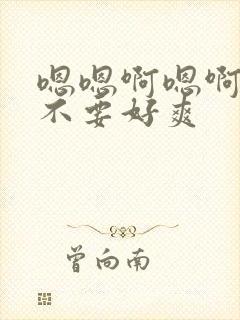 嗯嗯啊嗯啊
不要好爽
曾向南